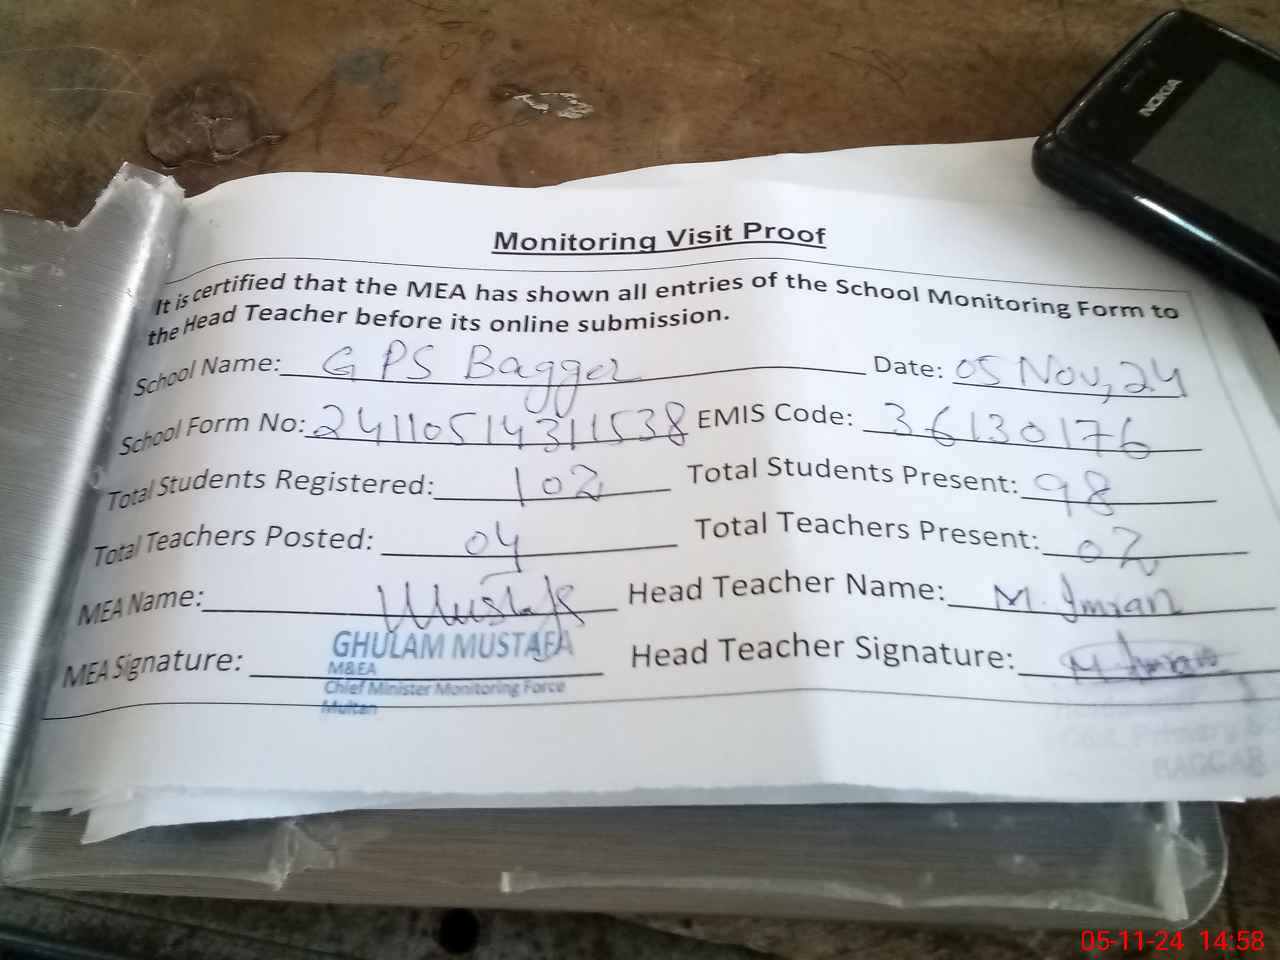 NOKIA
Monitoring Visit Proof
It is certified that the MEA has shown all entries of the School Monitoring Form to
the Head Teacher before its online submission.
School Name: GPS Bagger Date: 05 Nov, 24
School Form No: 24110514311538 EMIS Code: 36130176
Total Students Registered: 102 Total Students Present: 98
Total Teachers Posted: 04 Total Teachers Present: 02
MEA Name: Mustafa Head Teacher Name: M. Imran
MEA Signature: Head Teacher Signature: M. Imran
GHULAM MUSTAFA
M&EA
Chief Minister Monitoring Force
Multan
Govt. Primary S
BAGGAR
05-11-24 14:58